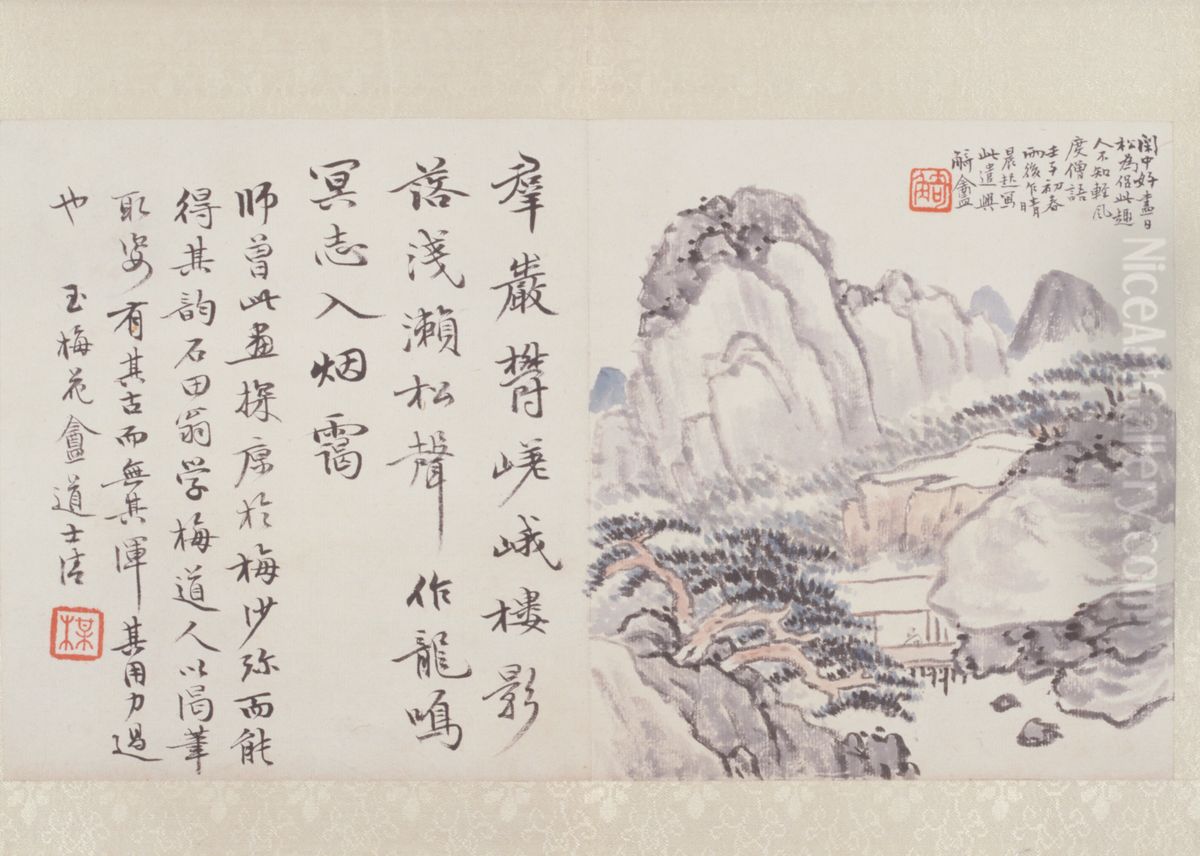 閑中好盡日
松為侶此趣
人不知輕風
度僧語
壬子初春
雨後乍晴
晨起寫
此遣興
羣巖欝嵯峨樓影
落淺瀨松聲作龍鳴
冥志入烟靄
師曾此畫探原於梅沙弥而能
得其韵石田翁学梅道人以禿筆
取姿有其古而無其渾其用力過
也
玉梅花盦道士清
NiceArtGallery.com